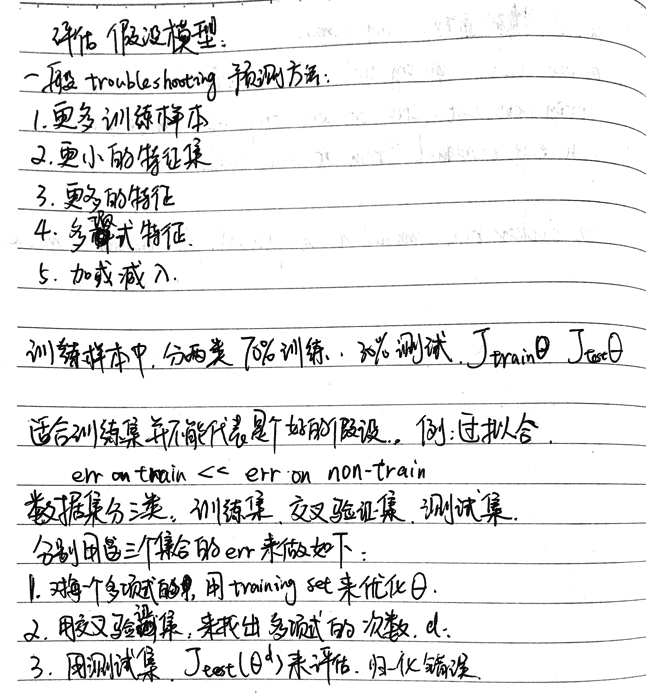 评估假设模型:
一般troubleshooting 预测方法:
1.更多训练样本
2.更小的特征集
3.更多的特征
4.多项式特征.
5.加或减λ.
训练样本中,分两类 70%训练.. 30%测试. Jtrainθ Jtestθ
适合训练集并不能代表是个好的假设.. 例:过拟合.
err on train << err on non-train
数据集分三类. 训练集. 交叉验证集. 测试集.
分别用三个集合的err来做如下:
1.对每个多项式的,用training set来优化θ.
2.用交叉验证集,来找出多项式的次数. d.
3.用测试集 Jtest(θᵈ)来评估. 归一化错误